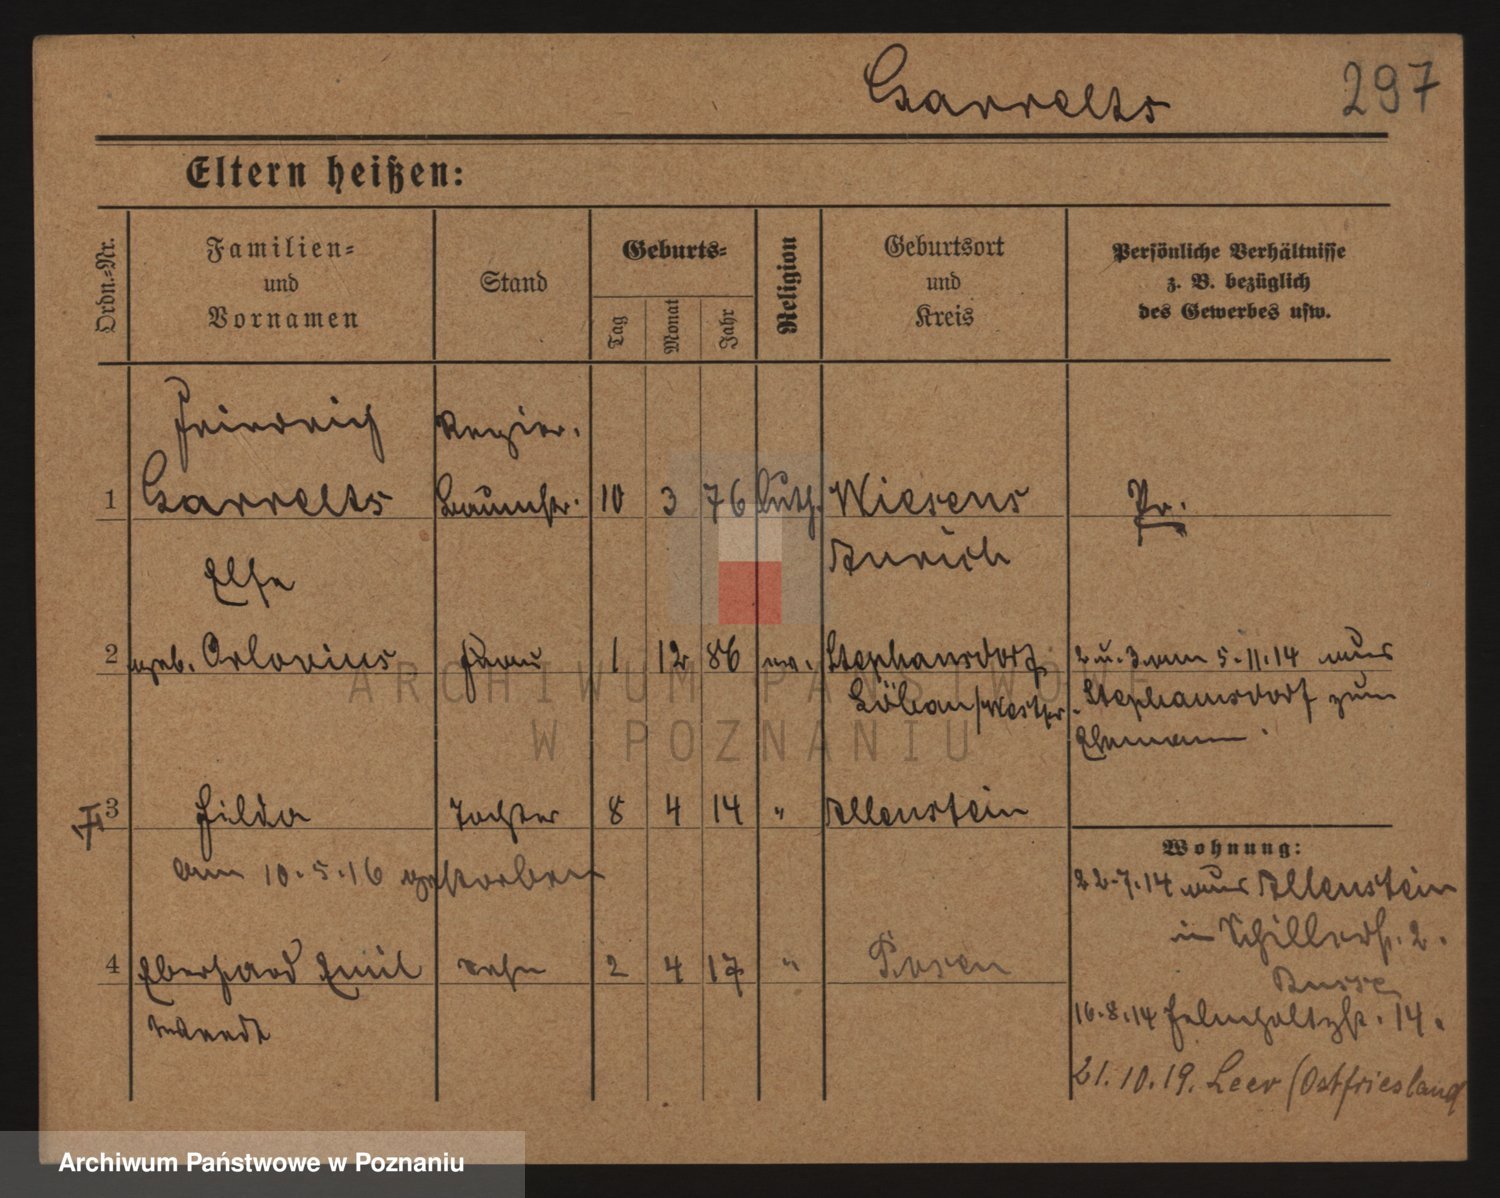 Garrelts
297
Eltern heißen:
Ordn.-Nr.
Familien-
und
Vornamen
Stand
Geburts-
Tag
Monat
Jahr
Religion
Geburtsort
und
Kreis
Persönliche Verhältnisse
z. B. bezüglich
des Gewerbes usw.
Friedrich Regier.
1 Garrelts Baumstr. 10 3 76 luth. Wiesens Pr.
Aurich
Else
2 geb. Orlovius Frau 1 12 86 ev. Stephansdorf 2 u. 3 am 5.11.14 aus
Löbau/Westpr. Stephansdorf zum
Ehemann.
3 Hilda Tochter 8 4 14 " Allenstein
Wohnung:
am 10.5.16 gestorben
22.7.14 aus Allenstein
in Schillerstr. 2.
4 Eberhard Emil Sohn 2 4 17 " Posen
Busse
16.8.14 Helmholtzstr. 14.
21.10.19. Leer (Ostfriesland
ARCHIWUM PAŃSTWOWE
W POZNANIU
Archiwum Państwowe w Poznaniu